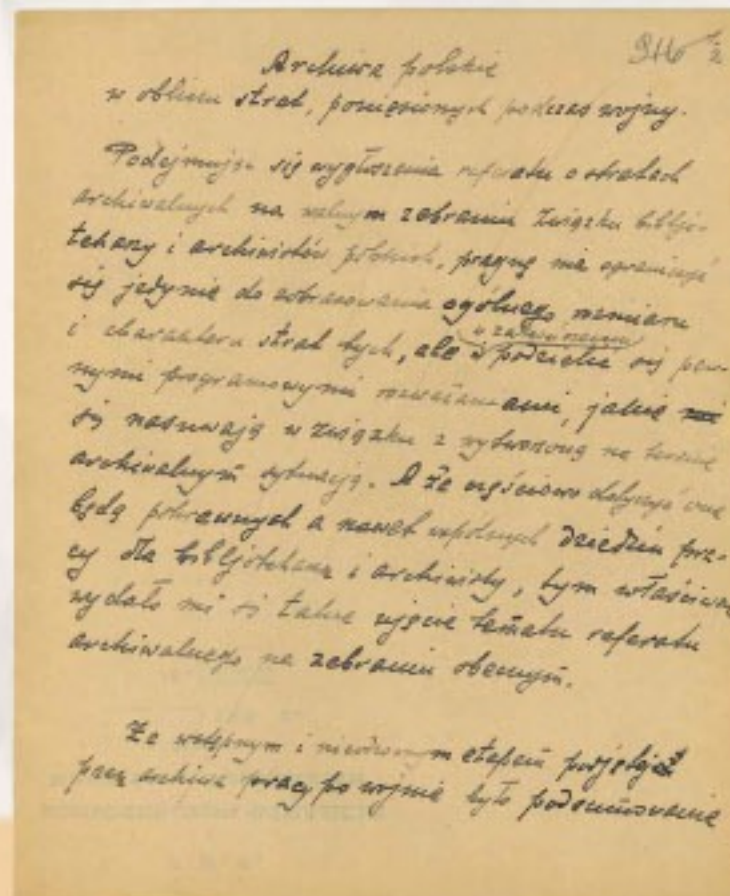 946 1/2
Archiwa polskie
w obliczu strat, poniesionych podczas wojny.
Podejmując się wygłoszenia referatu o stratach
archiwalnych na walnym zebraniu Związku bibljo-
tekarzy i archiwistów polskich, pragnę nie ograniczyć
się jedynie do zobrazowania ogólnego rozmiaru
i charakteru strat tych, ale i podzielić się pew-
nymi programowymi rozważaniami, jakie
się nasuwają w związku z wytworzoną na terenie
archiwalnym sytuacją. A że częściowo dotyczyć one
będą pokrewnych a nawet wspólnych dziedzin pra-
cy dla bibljotekarza i archiwisty, tym właściwsze
wydało mi się takie ujęcie tematu referatu
archiwalnego na zebraniu obecnym.
Że wstępnym i etapem podjętej
przez archiwa pracy po wojnie było podsumowanie